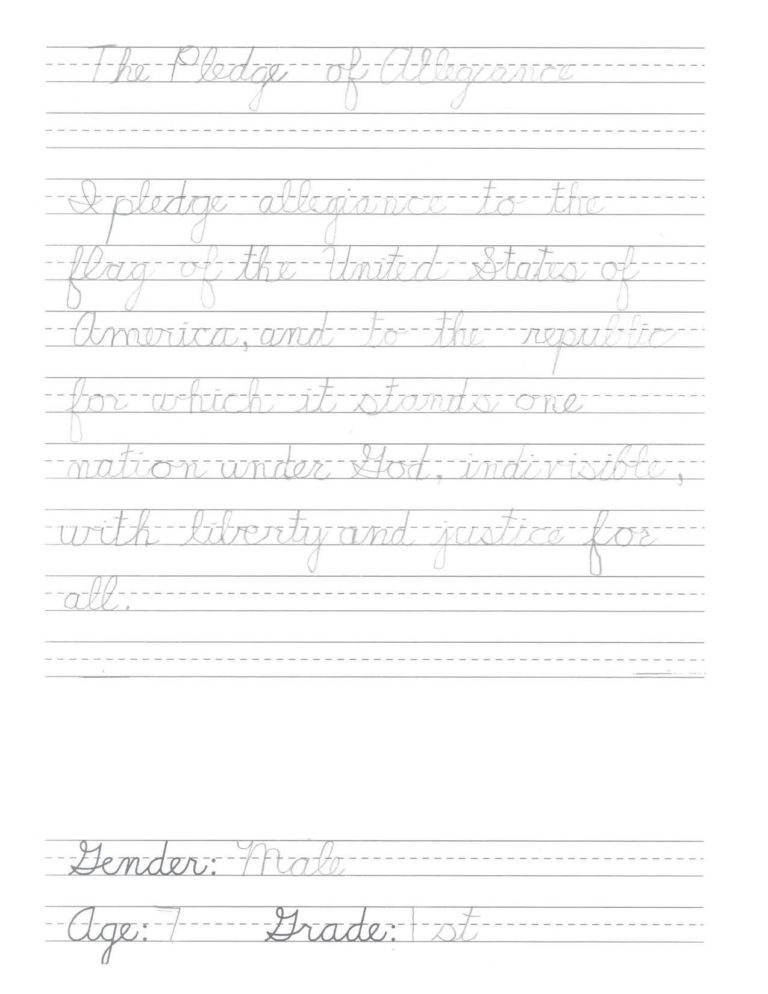 The Pledge of Allegiance
I pledge allegiance to the
flag of the United States of
America, and to the republic
for which it stands one
nation under God, indivisible,
with liberty and justice for
all.
Gender: Male
Age: 7 Grade: 1st